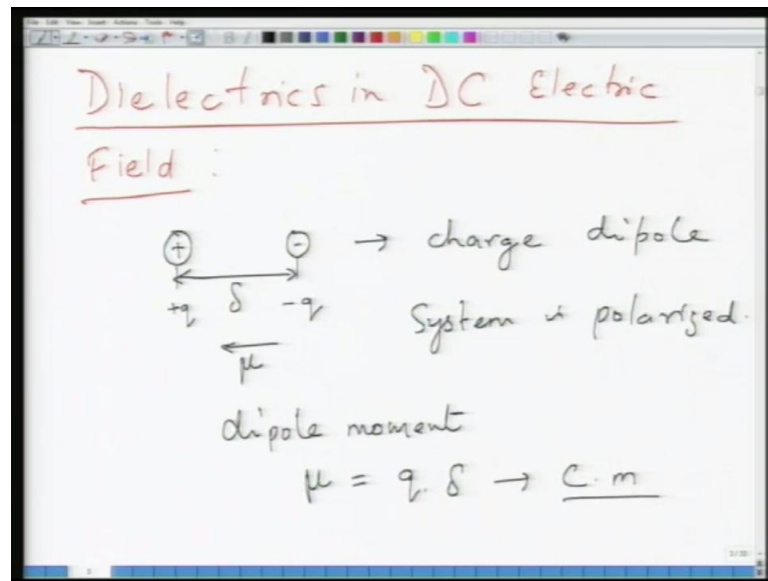 File Edit View Insert Actions Tools Help
Dielectrics in DC Electric
Field :
+ - → charge dipole
+q δ -q
System is polarized.
μ
dipole moment
μ = q. δ → C. m